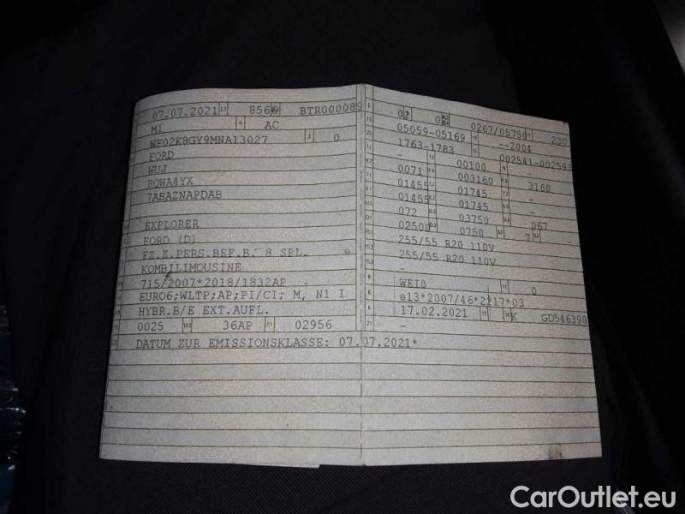 07.07.2021 8566 BTR000089
M1 AC
WF02K8GY9MNA13027 3 0
FORD
WUJ
BQWA4YX
7ABAZNAPDAB
EXPLORER
FORD (D)
FZ.Z.PERS.BEF.B. 8 SPL.
KOMBILIMOUSINE
715/2007*2018/1832AP
EURO6;WLTP;AP;PI/CI; M, N1 I
HYBR.B/E EXT.AUFL.
0025 36AP 02956
DATUM ZUR EMISSIONSKLASSE: 07.07.2021*
02 02 0267/05750* 230
05059-05169 --2004
1763-1783 - 002541-002593
- 00100 -
0071 003160 3160
01455 01745 -
01455 01745 -
072 03750 067
02500 0750 7 -
255/55 R20 110V
255/55 R20 110V
-
WEIß 0
e13*2007/46*2217*03
17.02.2021 K GD546398
-
CarOutlet.eu